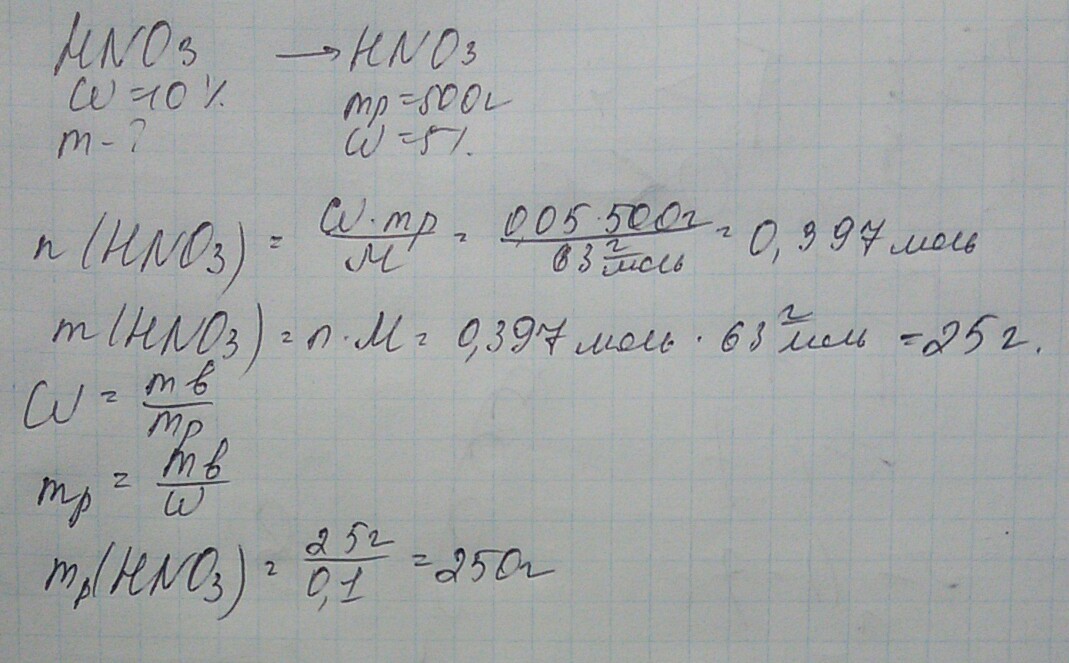 HNO3 → HNO3
W=10% mр=500г
m-? W=5%.
n(HNO3) = W·mр/M = 0,05·500г/63 г/моль = 0,397 моль
m(HNO3) = n·M = 0,397 моль · 63 г/моль = 25г.
W = mв/mр
mр = mв/W
mр(HNO3) = 25г/0,1 = 250г